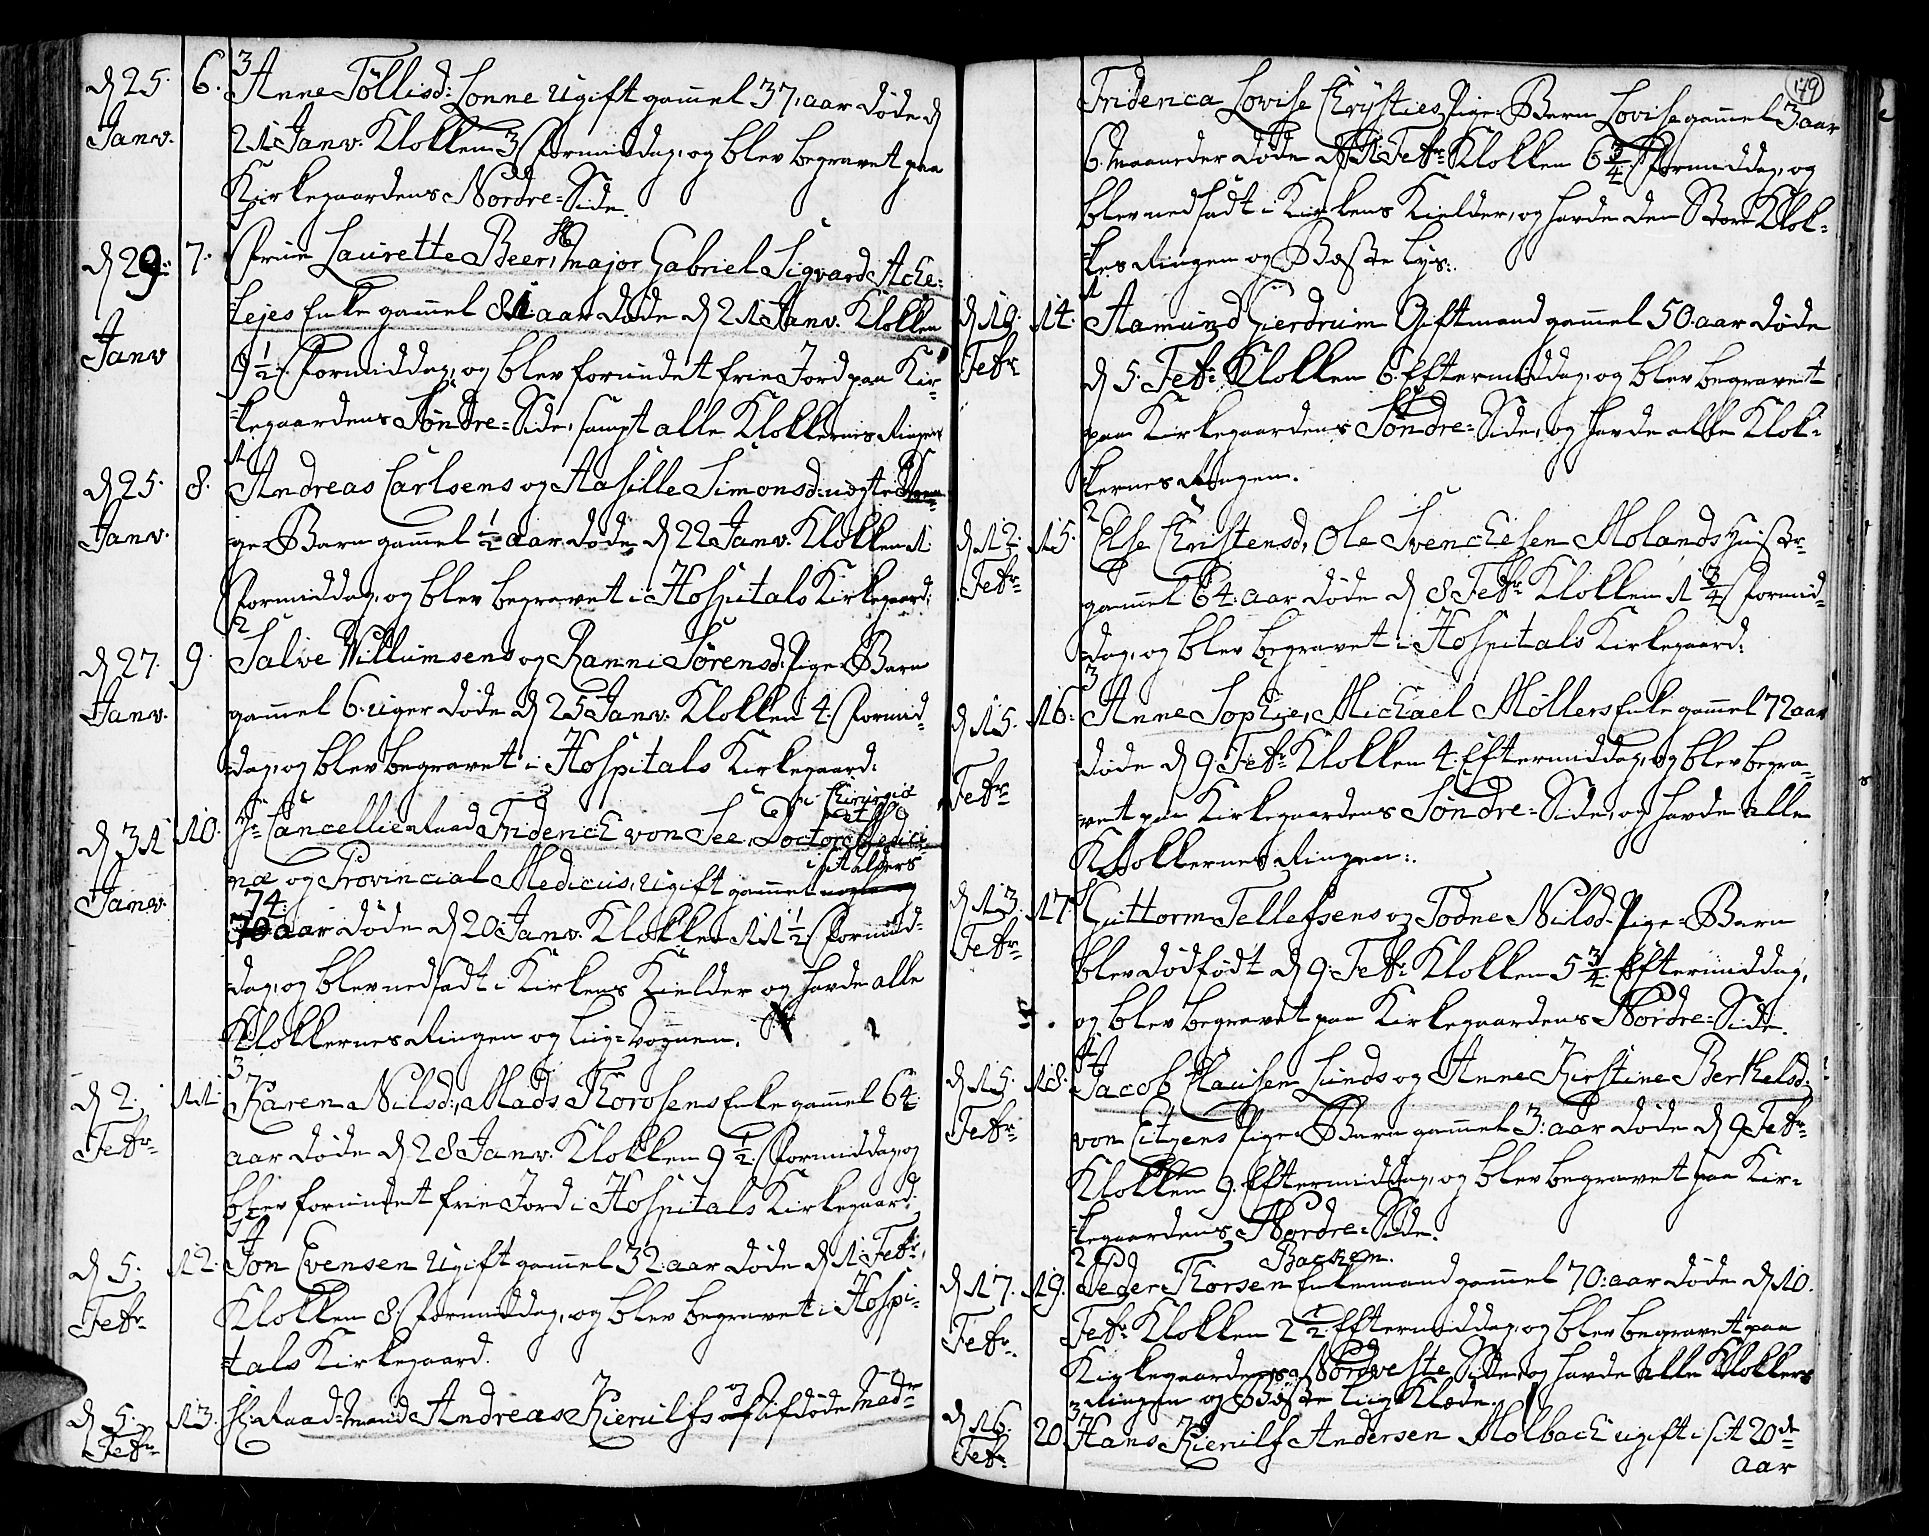 d 25. 6. 3 Anne Töllisd: Lonne ugift gamel 37, aar døde d
Janv. 21 Janv: Klokken 3 Formiddag, og blev begravet paa
Kirkegaardens Nordre-Side.
d 29: 7. Frue Laurette Beer, Major Gabriel Sigvard Ache-
Janv -lejes Enke gamel 81 aar døde d 21 Janv. Klokken
9 1/2. Formiddag, og blev forundet frie Jord paa Kir-
-kegaardens Søndre-Side, sampt alle Klokkernis Ringen
d 25. 8. 1 Andreas Carlsens og Aasille Simonsd: uægte
Janv. ge-Barn gamel 1/2 aar døde d 22 Janv. Klokken 1.
Formiddag, og blev begravet i Hospitals Kirkegaard:
d 27. 9. 2 Salve Willumsens og Ranni Sørensd: Pige-Barn
Janv. gamel 6. uger døde d 25 Janv. Klokken 4. Formid-
-dag, og blev begravet i Hospitals Kirkegaard:
d 31 10. Hr Cancellie Raad Friderich von See, Doctor Medici-
Chirurgiæ
Janv. næ og Provincial Medicus, ugift gamel
i sit Alders
74:
70 aar døde d 20 Janv. Klokken 11 1/2 Formid-
-dag, og blev nedsadt i Kirkens Kielder og havde alle
Klokkernes Ringen og Liig-Vognen.
d 2. 11. 3 Karen Nilsd:, Mads Thorosens Enke gamel 64.
Febr. aar døde d 28 Janv. Klokken 9 1/2. Formiddag, og
blev forundet frie Jord i Hospitals Kirkegaard:
d 5. 12. 4 Jon Evensen ugift gamel 32: aar døde d 1 Febr.
Febr. Klokken 8. Formiddag, og blev begravet i Hospi-
-tals Kirkegaard.
d 5. 13. Sl: Raad-Mand Andreas Kierulfs og Afdøde Madr
Febr.
179
Friderica Lovise Chrysties Pige-Barn Lovise gamel 3 aar
6. Maaneder døde d 1 Febr. Klokken 6 3/4 Formiddag, og
blev nedsadt i Kirkens Kielder, og havde den Store Klok-
-kes Ringen og Beste Lys.
d 10. 14. 1 Aamund Gierdrum Giftmand gamel 50. aar døde
Febr d 5. Feb: Klokken 6. Eftermiddag, og blev begravet
paa Kirkegaardens Søndre-Side, og havde alle Klok-
-kernes Ringen.
d 12. 15. 2 Else Christensd, Ole Svenchesen Molands Hustr-
Febr. gamel 64: aar døde d 8 Febr Klokken 1 3/4 Formid-
-dag, og blev begravet i Hospitals Kirkegaard:
d 15. 16. 3 Anne Sophie, Michael Møllers Enke gamel 72 aar
Febr. døde d 9. Feb: Klokken 4. Eftermiddag, og blev begra-
-vet paa Kirkegaardens Søndre-Side, og havde alle
Klokkernes Ringen.
d 13. 17. Guttorm Tellefsens og Todne Nilsd: Pige-Barn
Febr. blev dødfødt d 9. Feb: Klokken 5 3/4. Eftermiddag,
og blev begravet paa Kirkegaardens Nordre-Side.
d 15. 18. Jacob Clausen Lunds og Anne Kirstine Berthelsd:
Febr. von Eitzens Pige-Barn gamel 3: aar døde d 9 Febr.
Klokken 9. Eftermiddag, og blev begravet paa Kir-
-kegaardens Nordre-Side.
Backen.
d 17. 19. 2 Peder Thorsen Enkemand gamel 70: aar døde d 10.
Febr. Feb: Klokken 2 1/2 Eftermiddag, og blev begravet paa
Kirkegaardens Nordveste Side, og havde alle Klokkers
Ringen og Beste Liig-Klæde.
d 16. 20. 3 Hans Kierulf Andersen Molbach ugift i sit 20de
Feb: aar